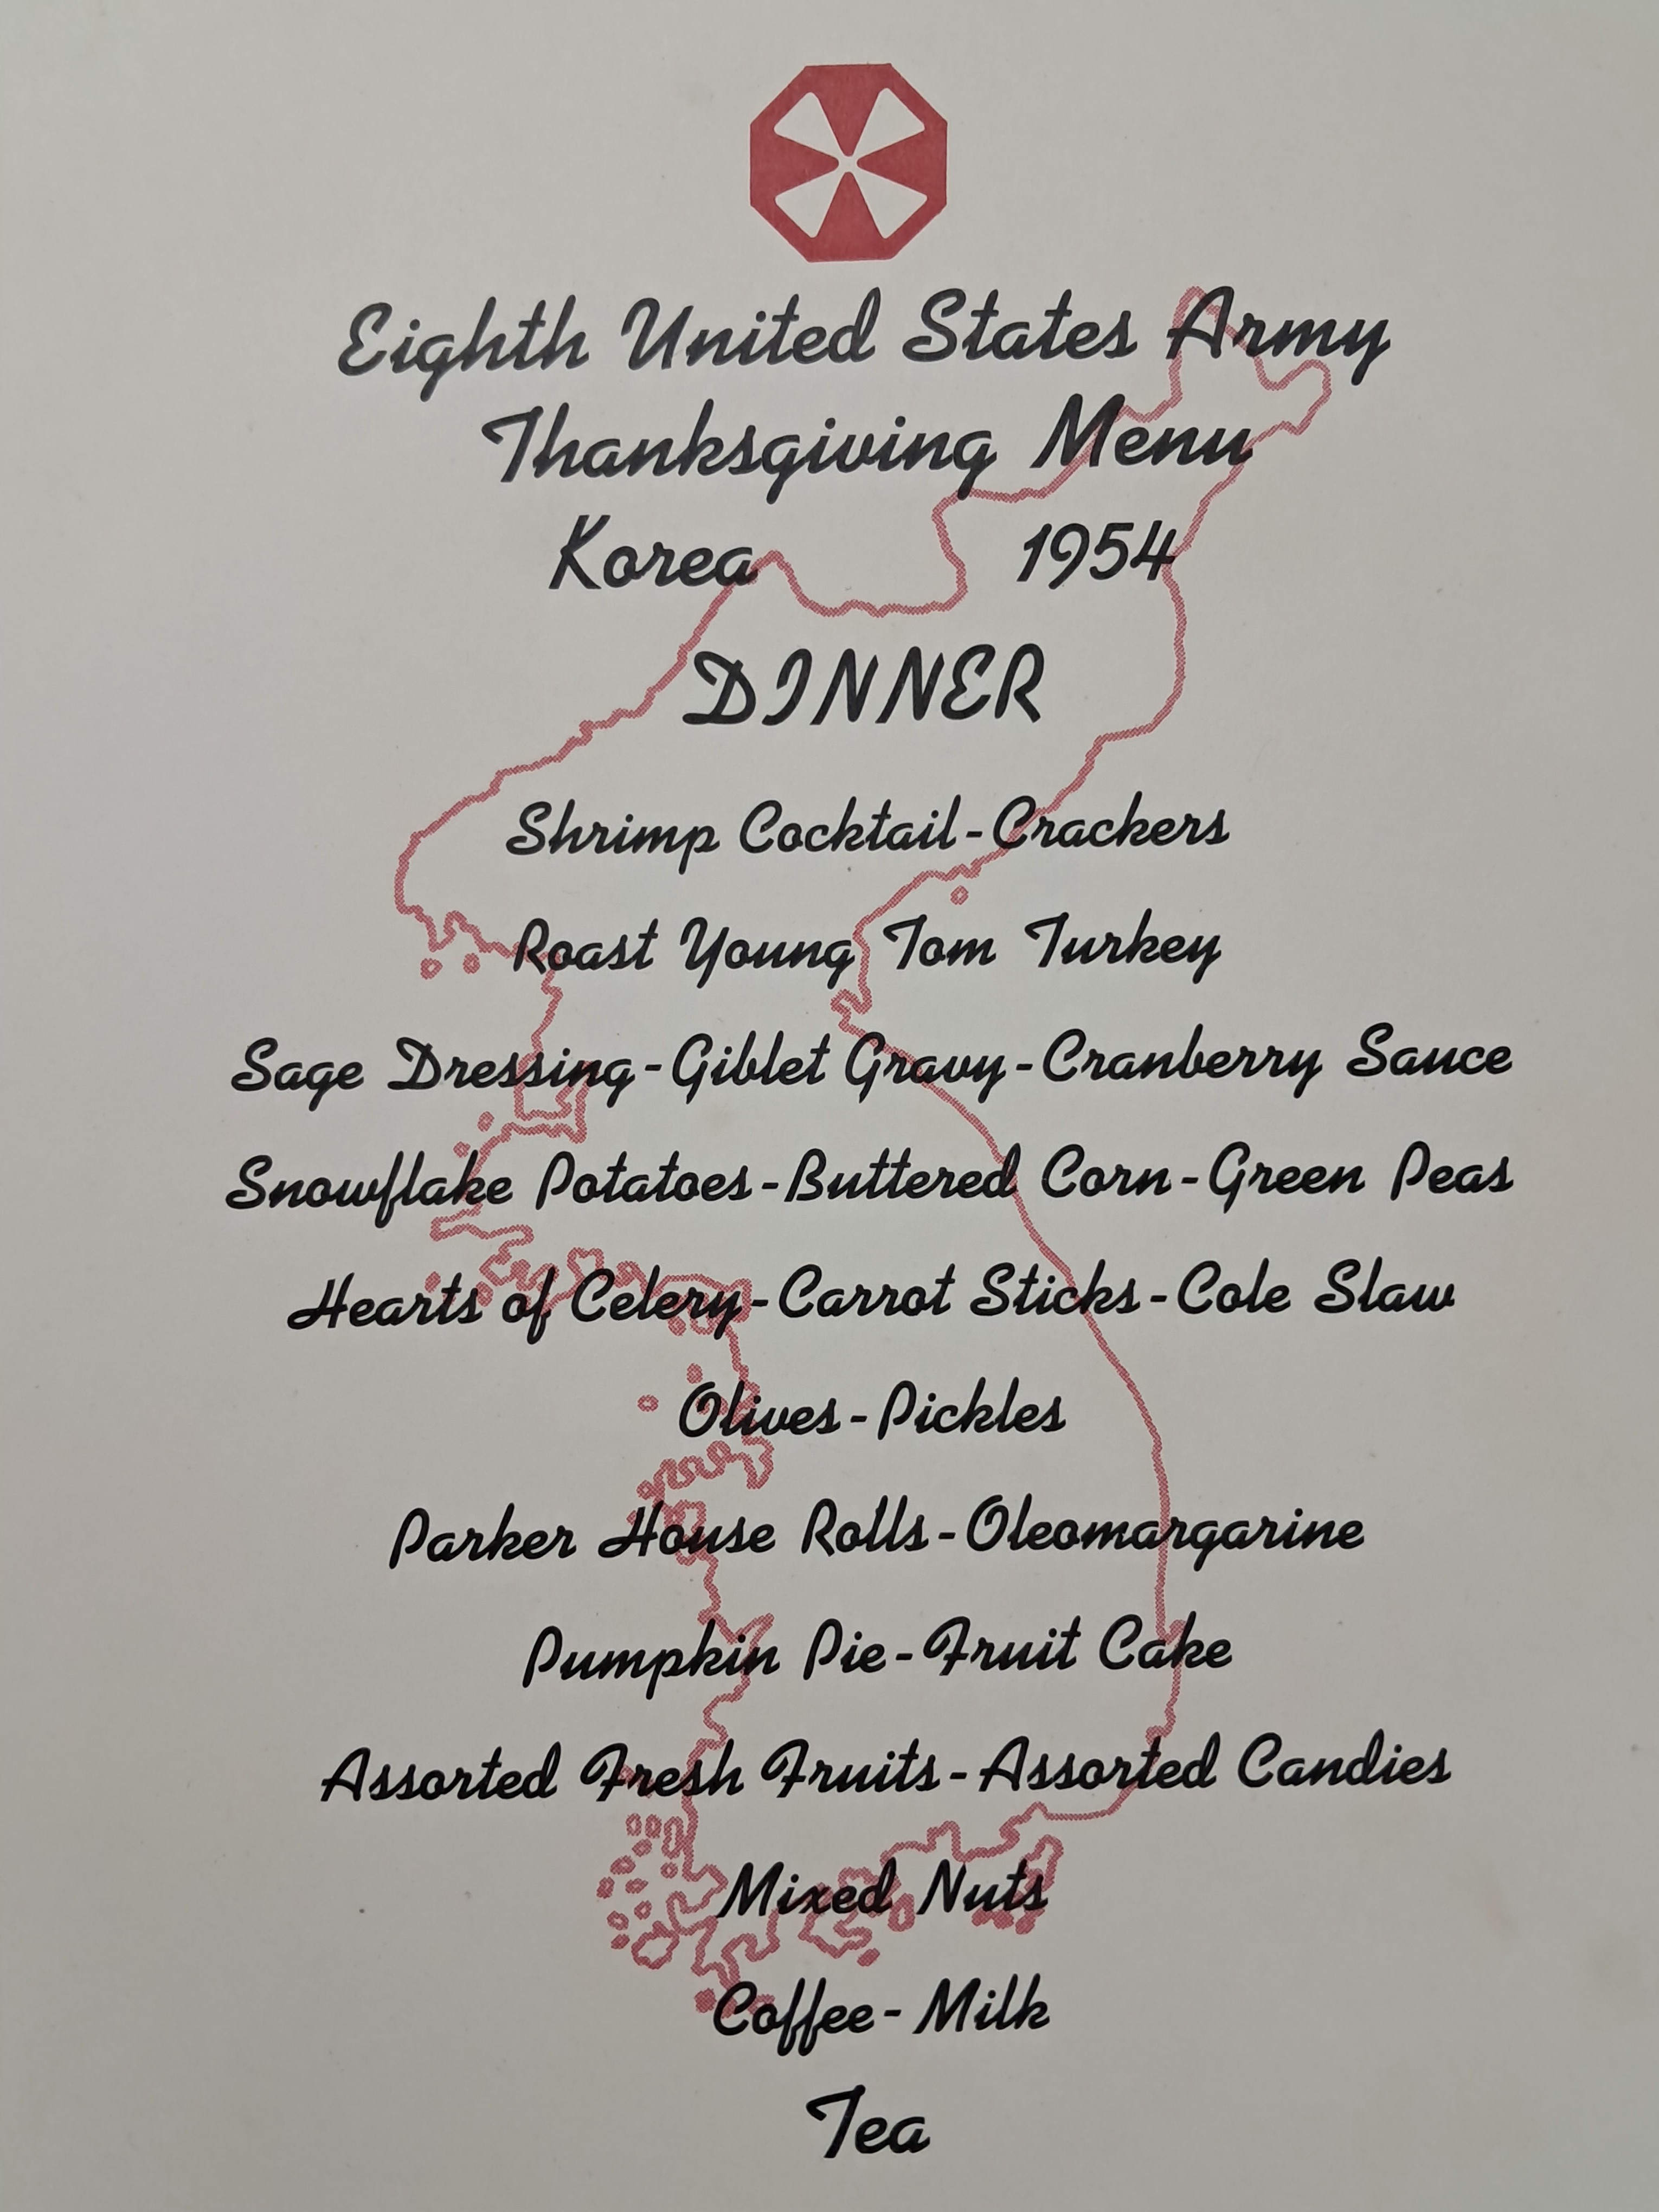 Eighth United States Army
Thanksgiving Menu
Korea 1954
DINNER
Shrimp Cocktail-Crackers
Roast Young Tom Turkey
Sage Dressing-Giblet Gravy-Cranberry Sauce
Snowflake Potatoes-Buttered Corn-Green Peas
Hearts of Celery-Carrot Sticks-Cole Slaw
Olives-Pickles
Parker House Rolls-Oleomargarine
Pumpkin Pie-Fruit Cake
Assorted Fresh Fruits-Assorted Candies
Mixed Nuts
Coffee-Milk
Tea